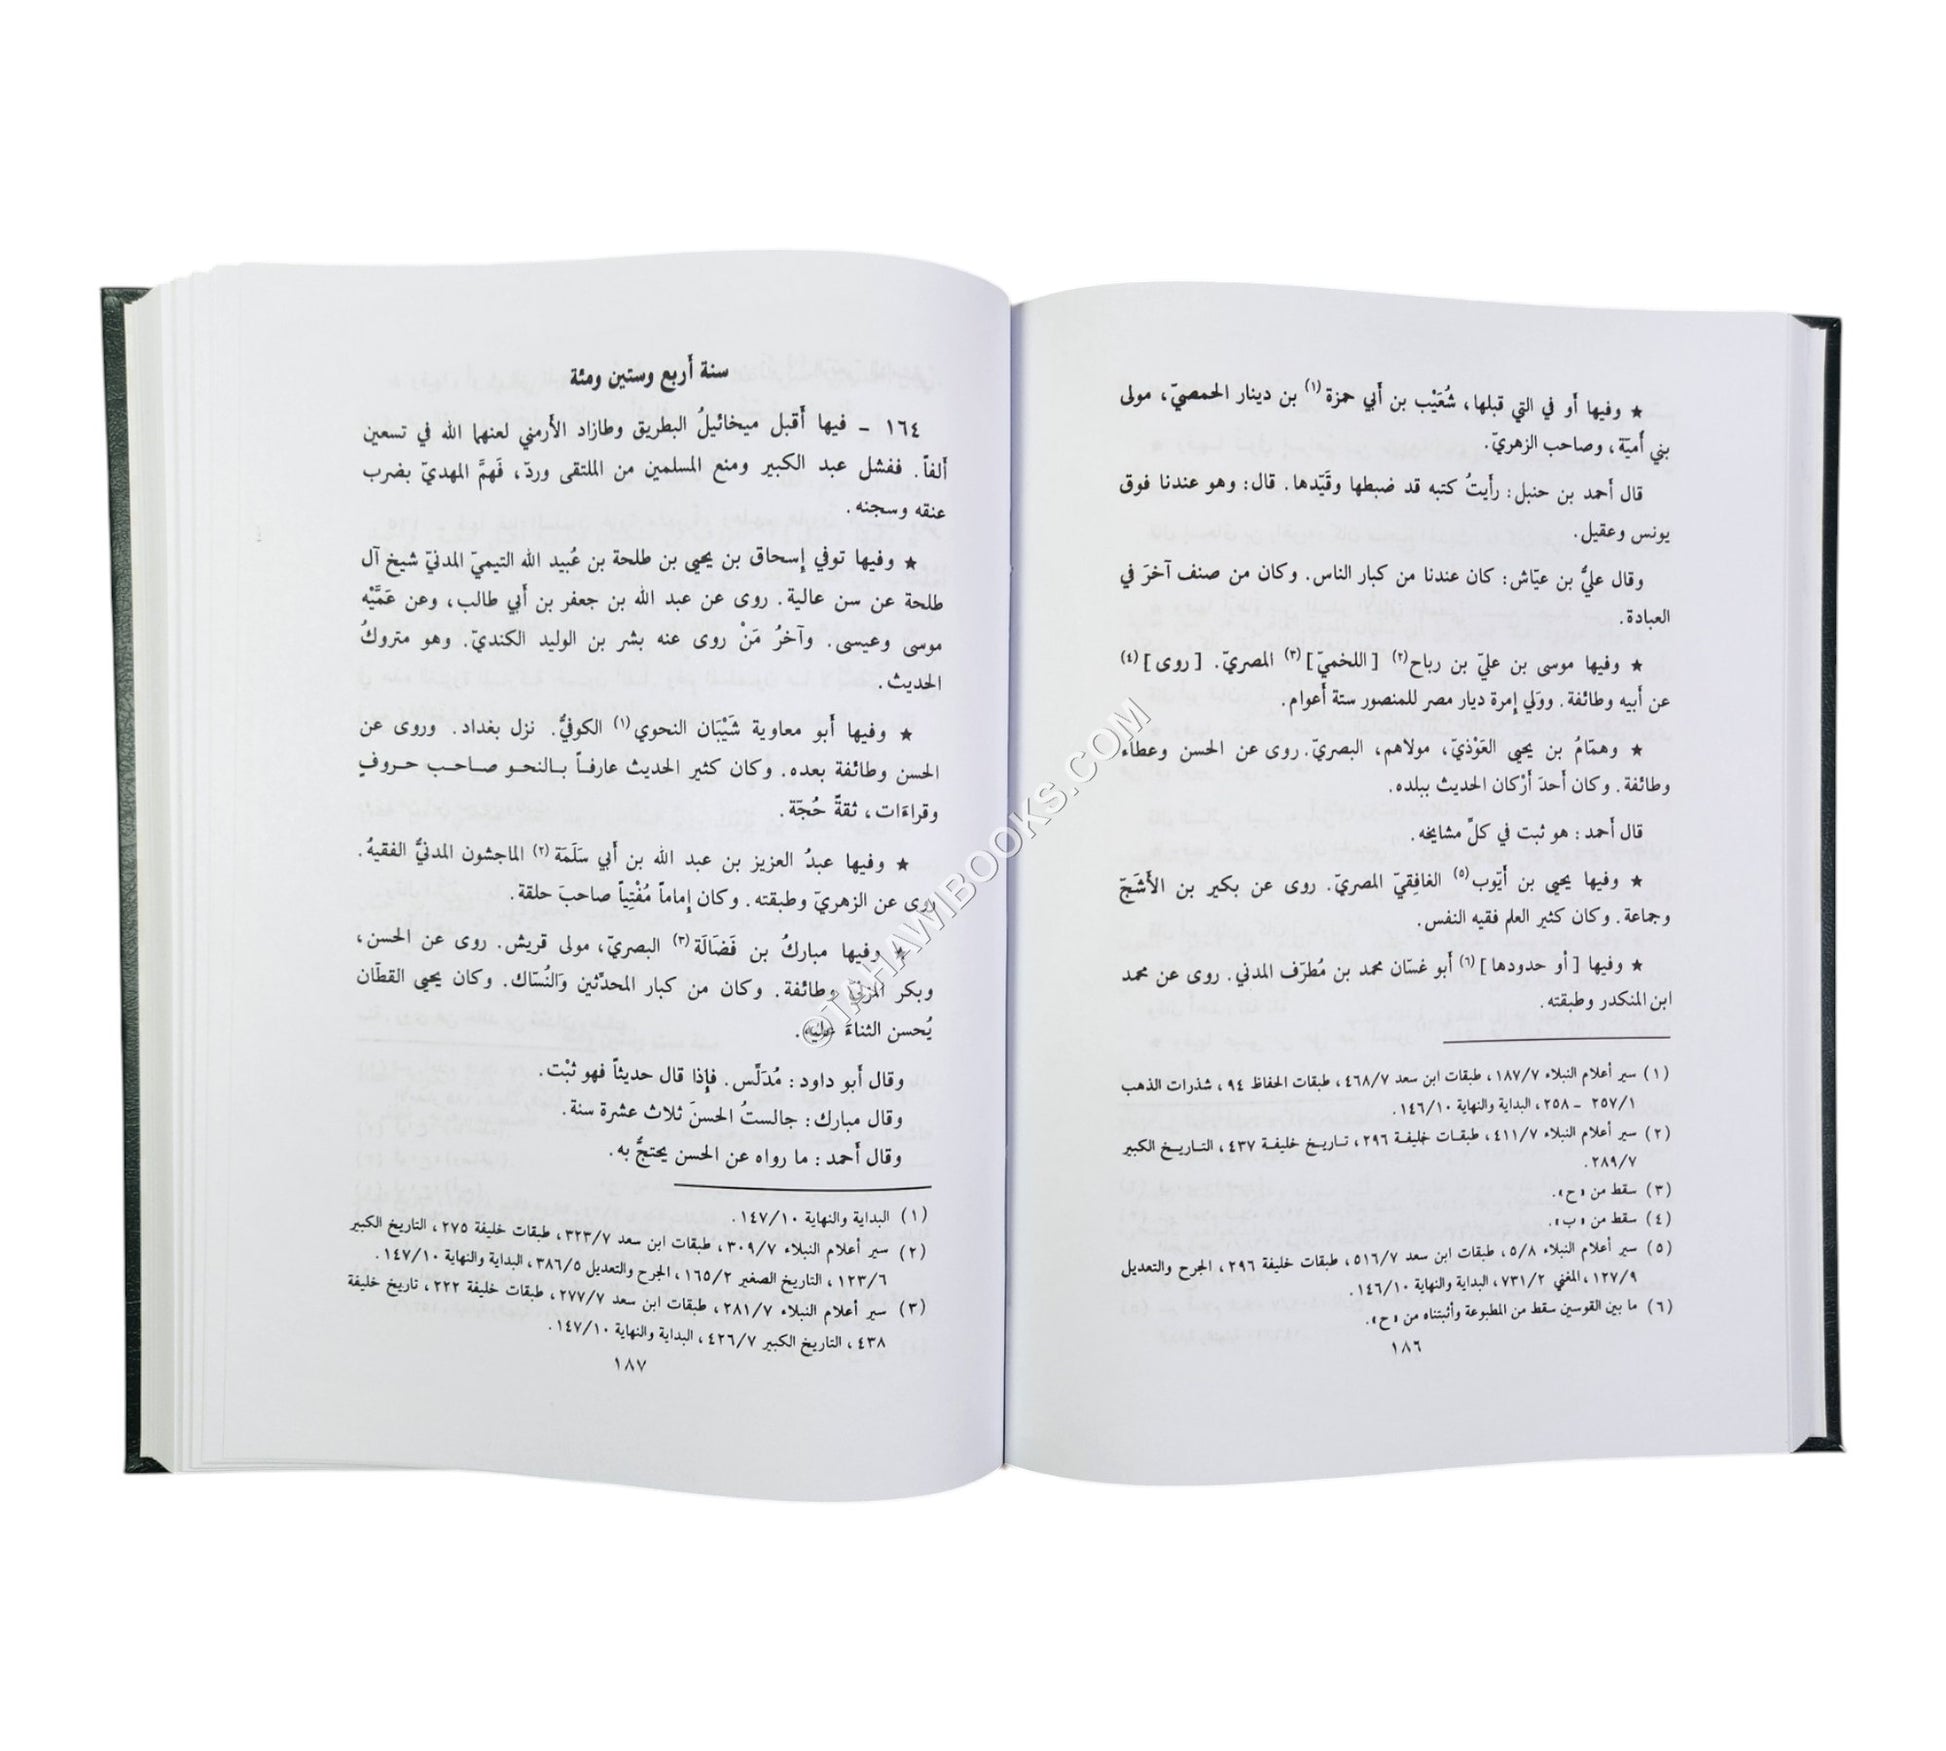 ★ وفيها أو في التي قبلها، شُعَيْب بن أبي حمزة(١) بن دينار الحمصيّ، مولى
بني أميّة، وصاحب الزهريّ.
قال أحمد بن حنبل: رأيتُ كتبه قد ضبطها وقَيّدها. قال: وهو عندنا فوق
يونس وعقيل.
وقال عليُّ بن عيّاش: كان عندنا من كبار الناس. وكان من صنف آخرَ في
العبادة.
★ وفيها موسى بن عليّ بن رباح(٢) [اللخميّ](٣) المصريّ. [روى](٤)
عن أبيه وطائفة. وولي إمرة ديار مصر للمنصور ستة أعوام.
★ وهمّامُ بن يحيى العَوْذيّ، مولاهم، البصريّ. روى عن الحسن وعطاء
وطائفة. وكان أحدَ أرْكان الحديث ببلده.
قال أحمد: هو ثبت في كلِّ مشايخه.
★ وفيها يحيى بن أيّوب(٥) الغافِقيّ المصريّ. روى عن بكير بن الأشَجّ
وجماعة. وكان كثير العلم فقيه النفس.
★ وفيها [أو حدودها](٦) أبو غسّان محمد بن مُطرّف المدني. روى عن محمد
ابن المنكدر وطبقته.
(١) سير أعلام النبلاء ١٨٧/٧، طبقات ابن سعد ٤٦٨/٧، طبقات الحفاظ ٩٤، شذرات الذهب
٢٥٧/١ - ٢٥٨، البداية والنهاية ١٤٦/١٠.
(٢) سير أعلام النبلاء ٤١١/٧، طبقات خليفة ٢٩٦، تاريخ خليفة ٤٣٧، التاريخ الكبير
٢٨٩/٧.
(٣) سقط من «ح».
(٤) سقط من «ب».
(٥) سير أعلام النبلاء ٥/٨، طبقات ابن سعد ٥١٦/٧، طبقات خليفة ٢٩٦، الجرح والتعديل
١٢٧/٩، المغني ٧٣١/٢، البداية والنهاية ١٤٦/١٠.
(٦) ما بين القوسين سقط من المطبوعة وأثبتناه من «ح».
١٨٦
سنة أربع وستين ومئة
١٦٤ - فيها أقبل ميخائيلُ البطريق وطازاد الأرمني لعنهما الله في تسعين
ألفاً. ففشل عبد الكبير ومنع المسلمين من الملتقى وردّ، فَهمَّ المهديّ بضرب
عنقه وسجنه.
★ وفيها توفي إسحاق بن يحيى بن طلحة بن عُبيد الله التيميّ المدنيّ شيخ آل
طلحة عن سن عالية. روى عن عبد الله بن جعفر بن أبي طالب، وعن عَمَّيْه
موسى وعيسى. وآخرُ مَنْ روى عنه بشر بن الوليد الكنديّ. وهو متروكُ
الحديث.
★ وفيها أبو معاوية شَيْبَان النحوي(١) الكوفيُّ. نزل بغداد. وروى عن
الحسن وطائفة بعده. وكان كثير الحديث عارفاً بالنحو صاحب حروفٍ
وقراءَات، ثقةً حُجّة.
★ وفيها عبدُ العزيز بن عبد الله بن أبي سَلَمَة(٢) الماجشون المدنيُّ الفقيهُ.
روى عن الزهريّ وطبقته. وكان إماماً مُفْتِياً صاحبَ حلقة.
★ وفيها مباركُ بن فَضَالَة(٣) البصريّ، مولى قريش. روى عن الحسن،
وبكر المزنيّ وطائفة. وكان من كبار المحدّثين والنُسّاك. وكان يحيى القطّان
يُحسن الثناءَ عليه.
وقال أبو داود: مُدَلِّس. فإذا قال حديثاً فهو ثبْت.
وقال مبارك: جالستُ الحسنَ ثلاث عشرة سنة.
وقال أحمد: ما رواه عن الحسن يحتجُّ به.
(١) البداية والنهاية ١٤٧/١٠.
(٢) سير أعلام النبلاء ٣٠٩/٧، طبقات ابن سعد ٣٢٣/٧، طبقات خليفة ٢٧٥، التاريخ الكبير
١٢٣/٦، التاريخ الصغير ١٦٥/٢، الجرح والتعديل ٣٨٦/٥، البداية والنهاية ١٤٧/١٠.
(٣) سير أعلام النبلاء ٢٨١/٧، طبقات ابن سعد ٢٧٧/٧، طبقات خليفة ٢٢٢، تاريخ خليفة
٤٣٨، التاريخ الكبير ٤٢٦/٧، البداية والنهاية ١٤٧/١٠.
١٨٧
©TAHAWIBOOKS.COM